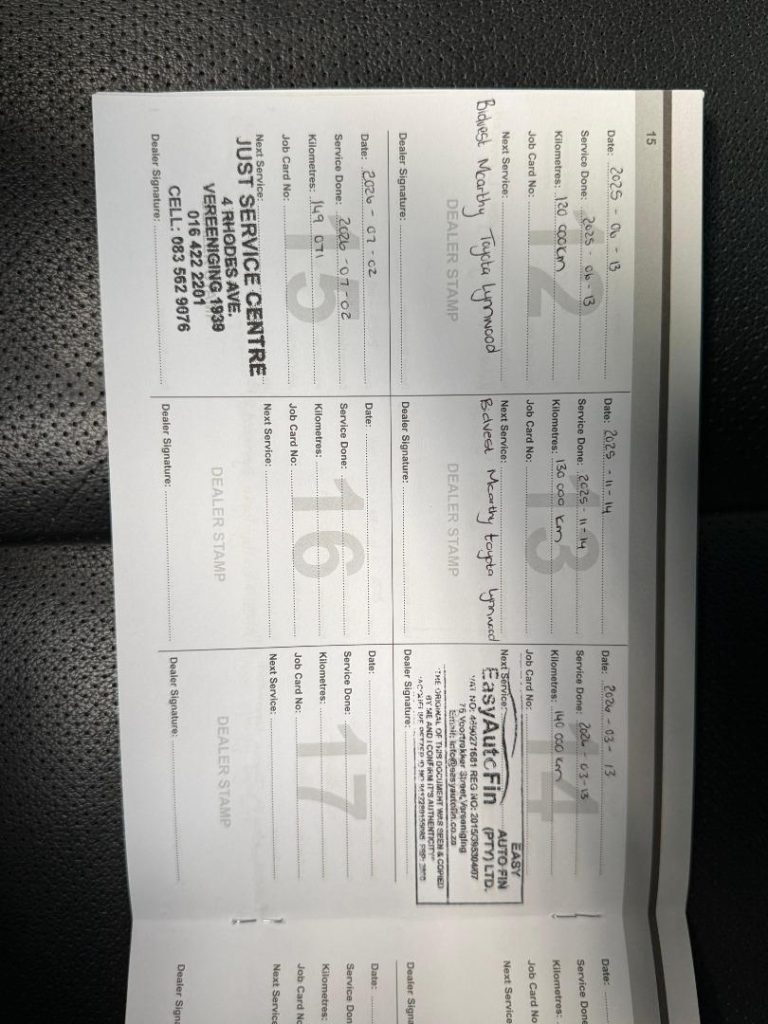 15
Date: 2025 - 06 - 13
Service Done: 2025 - 06 - 13
Kilometres: 120 000km
Job Card No:
Next Service:
12
Bidvest Mcarthy Toyota Lynnwood
DEALER STAMP
Dealer Signature:
Date: 2025 - 11 - 14
Service Done: 2025 - 11 - 14
Kilometres: 130 000 km
Job Card No:
Next Service:
13
Bidvest Mcarthy toyota lynnwood
DEALER STAMP
Dealer Signature:
Date: 2026 - 03 - 13
Service Done: 2026 - 03 - 13
Kilometres: 140 000 km
Job Card No:
Next Service:
14
EasyAutoFin
EASY
AUTO FIN
(PTY) LTD.
VAT NO: 4690271681 REG NO: 2015/395304/07
75 Voortrekker Street, Vereeniging
Email: info@easyautofin.co.za
THE ORIGINAL OF THIS DOCUMENT WAS SEEN & COPIED
BY ME AND I CONFIRM IT'S AUTHENTICITY
Dealer Signature:
Date:
Service Done
Kilometres:
Job Card No
Next Service
Dealer Signa
Date: 2026 - 07 - 02
Service Done: 2026 - 07 - 02
Kilometres: 149 071
Job Card No:
Next Service:
15
JUST SERVICE CENTRE
4 RHODES AVE.
VEREENIGING 1939
016 422 2201
CELL: 083 562 9076
Dealer Signature:
Date:
Service Done:
Kilometres:
Job Card No:
Next Service:
16
DEALER STAMP
Dealer Signature:
Date:
Service Done:
Kilometres:
Job Card No:
Next Service:
17
DEALER STAMP
Dealer Signature:
Date:
Service Done
Kilometres:
Job Card No
Next Service
Dealer Signa